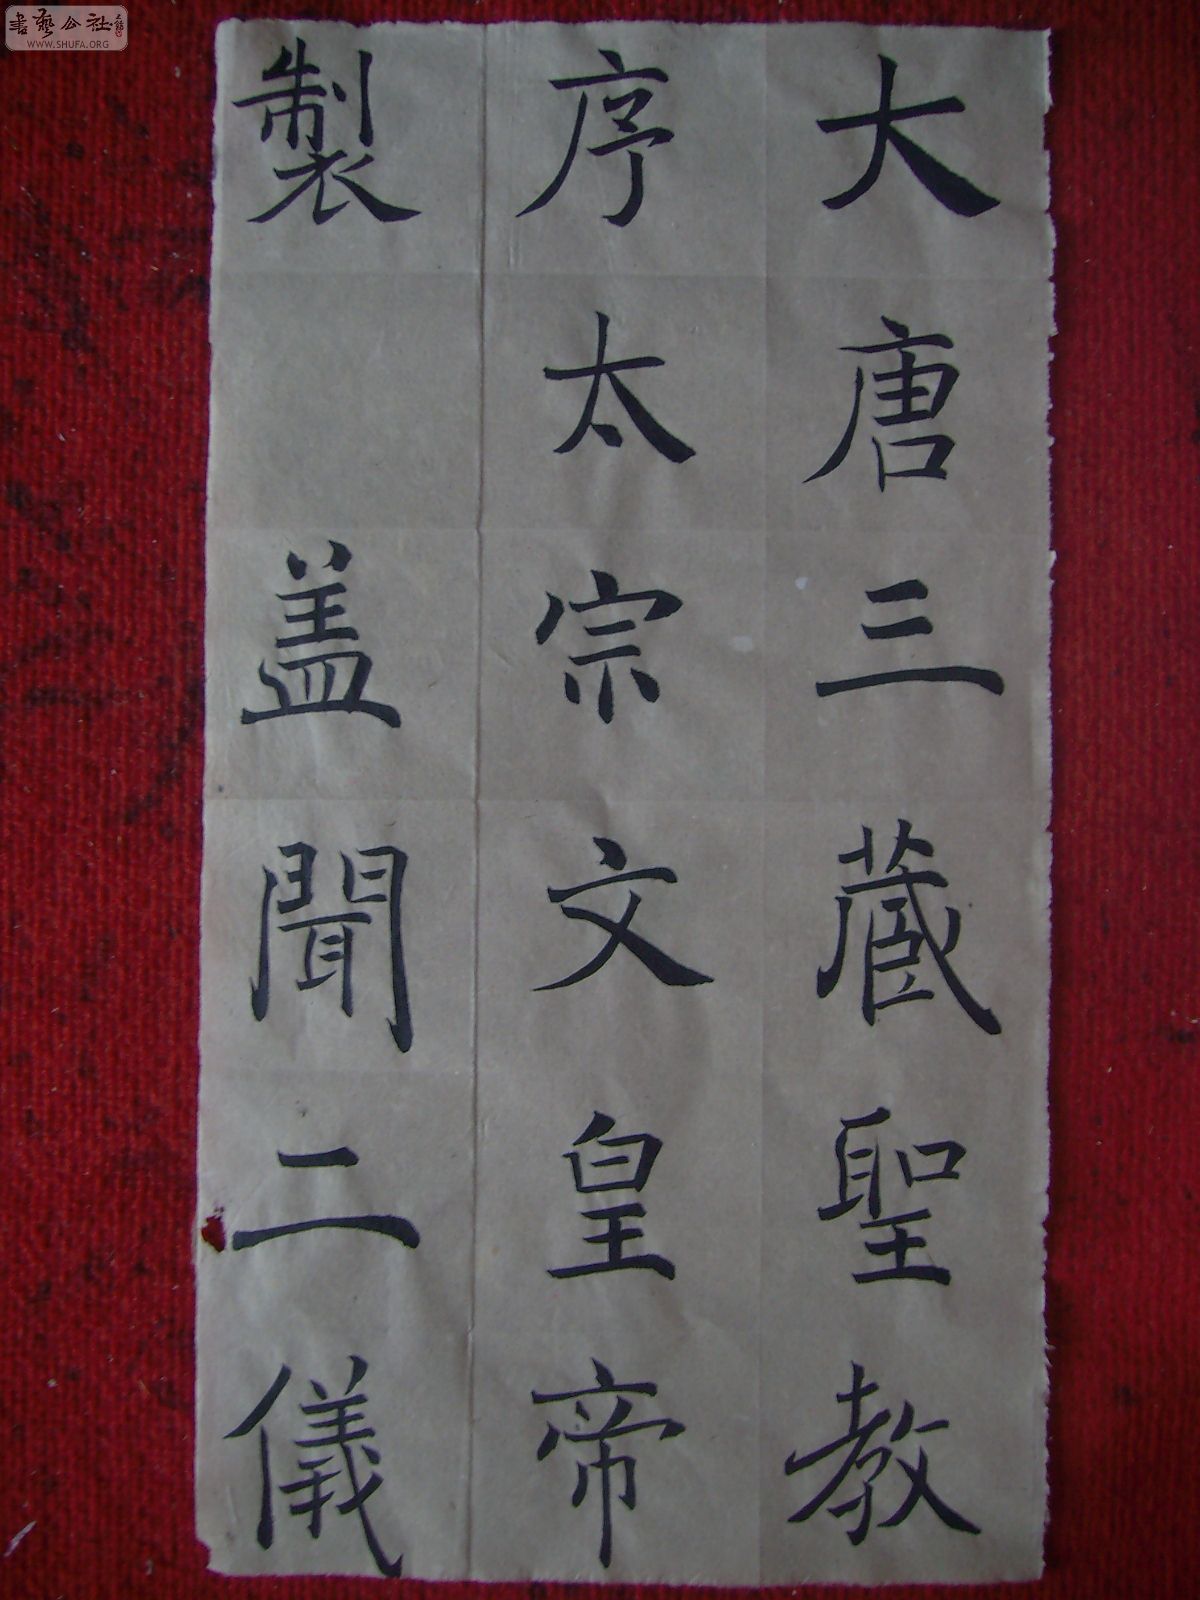 大唐三藏聖教
序太宗文皇帝
製 盖聞二儀
書藝公社
WWW.SHUFA.ORG